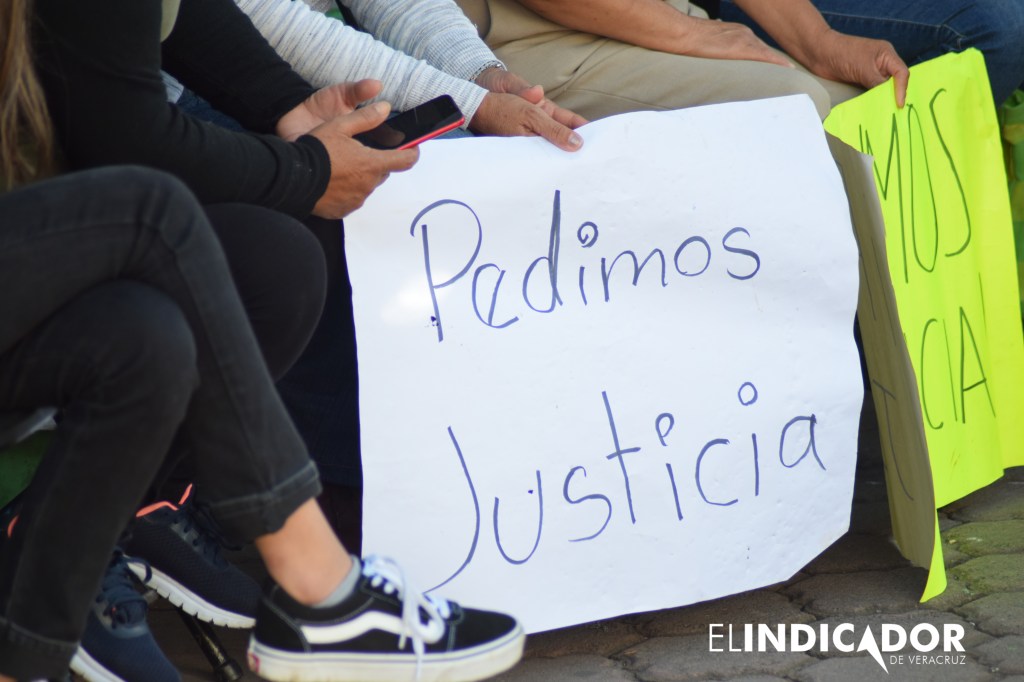 Pedimos
Justicia
MOS
CIA
ELINDICADOR
DE VERACRUZ